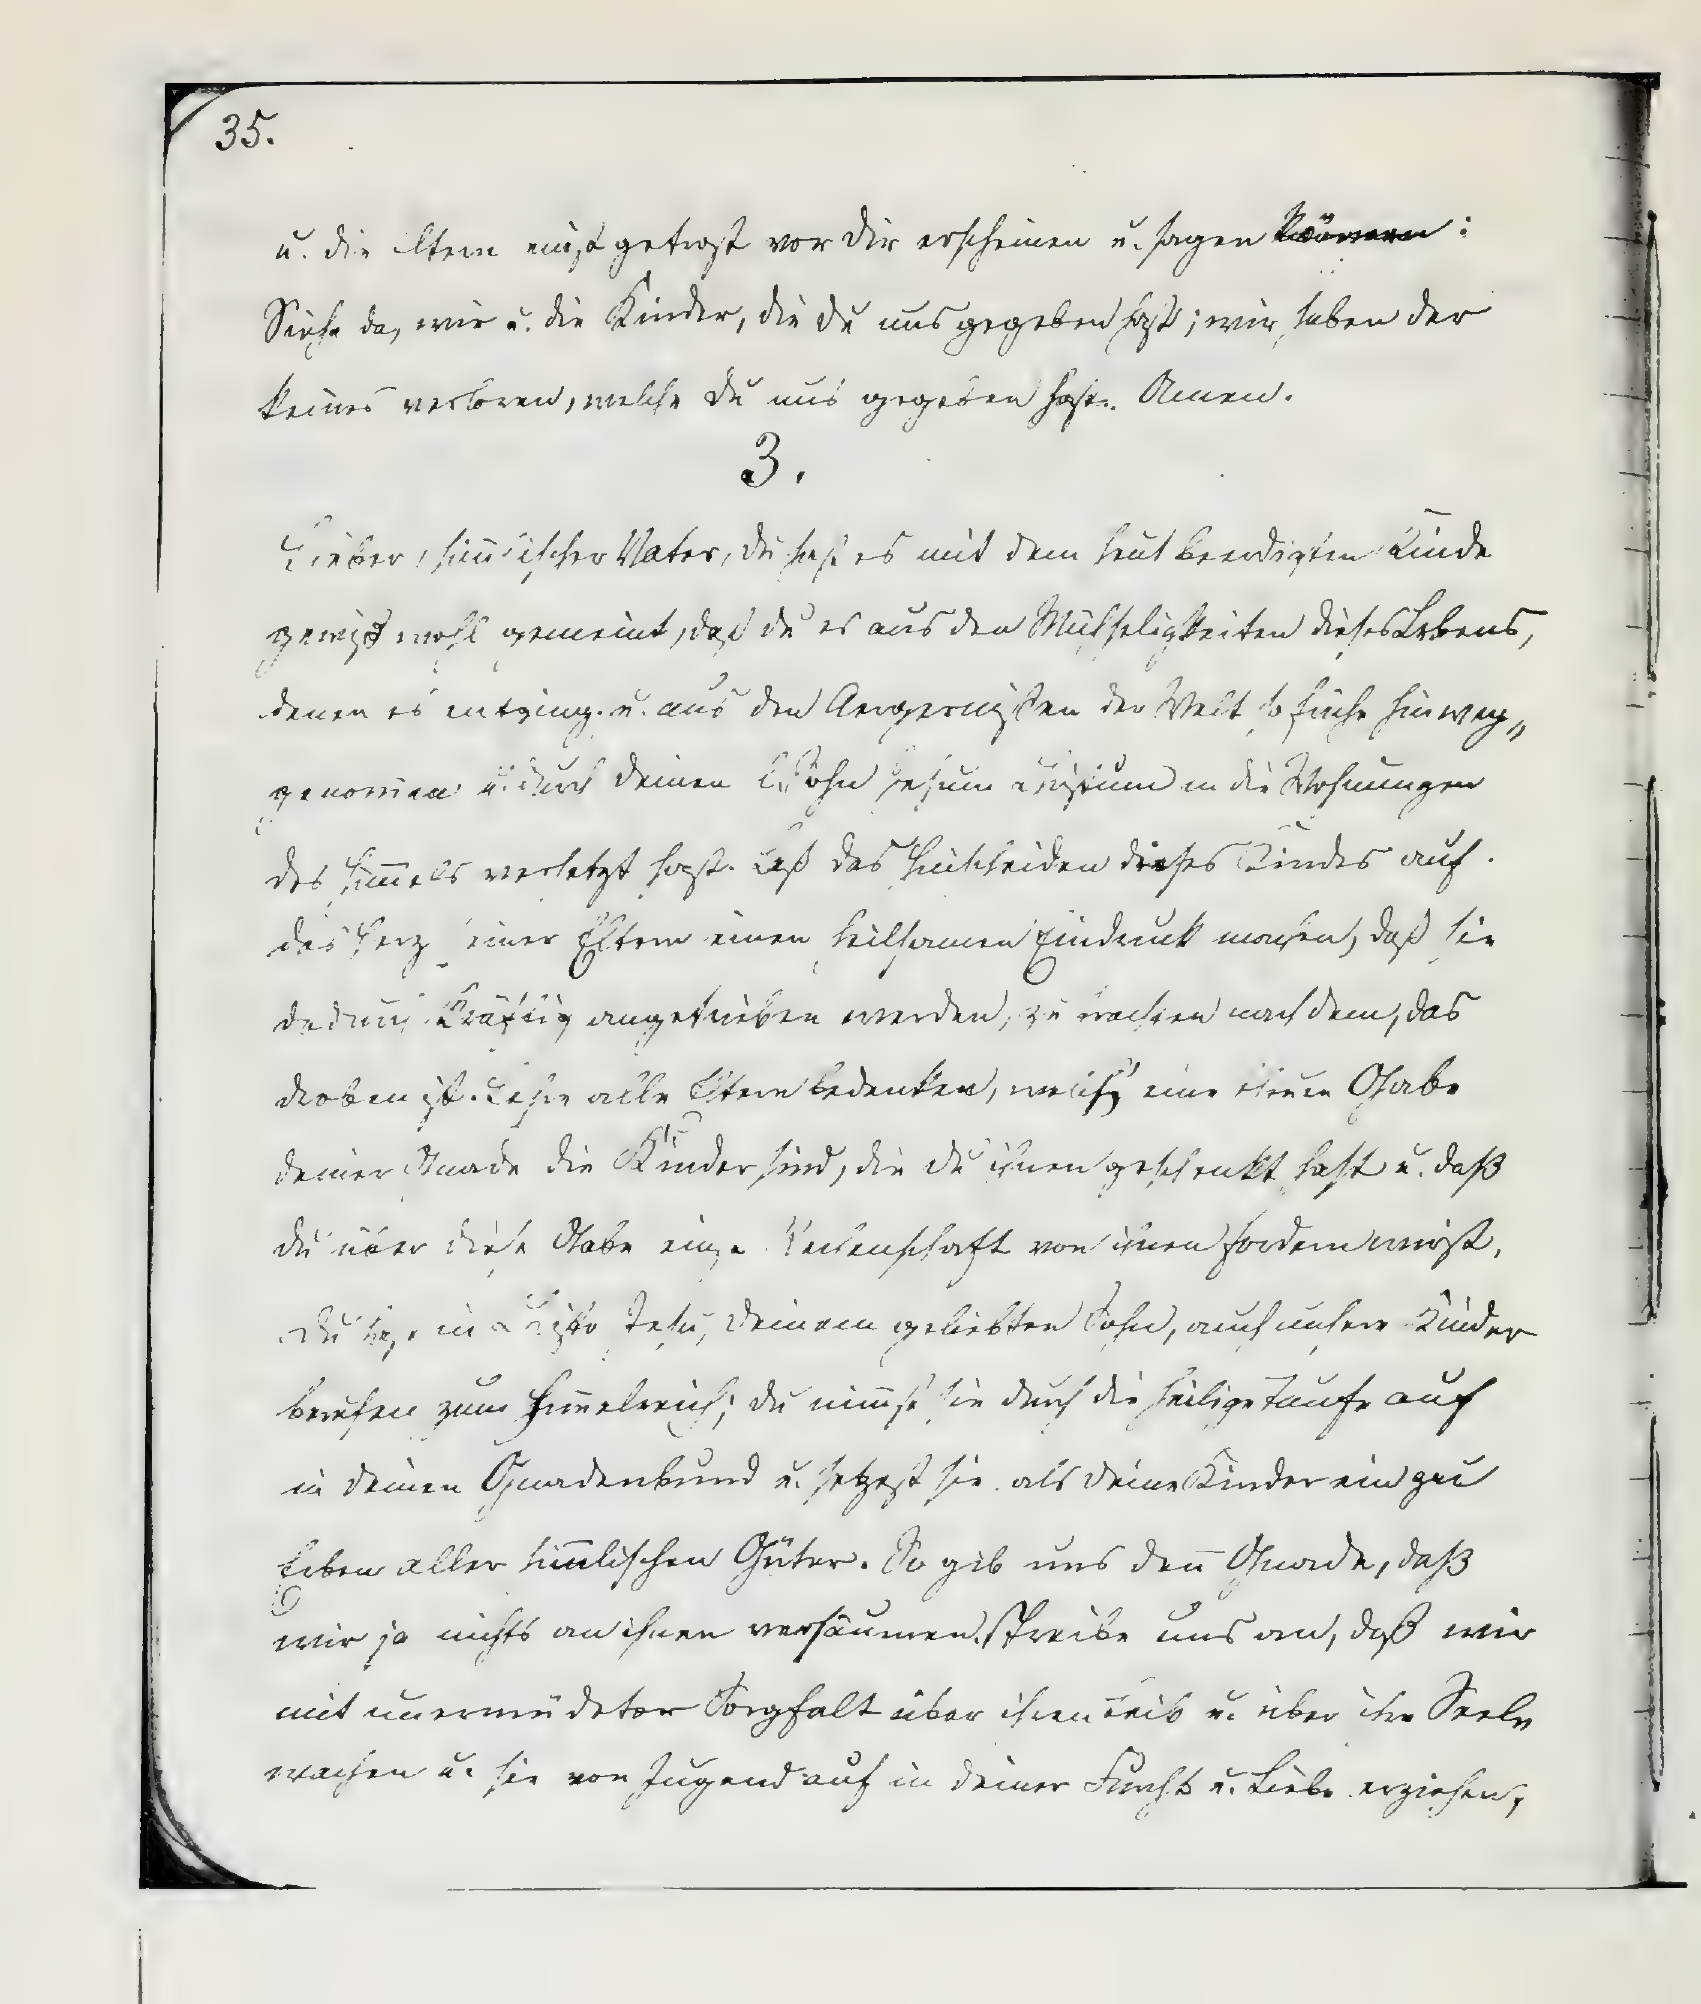 35.
u. die Eltern einst getrost vor dir erscheinen u. sagen können:
Siehe da, wir u. die Kinder, die du uns gegeben hast; wir haben der
keines verloren, welche du uns gegeben hast. Amen.
3.
Lieber, himlischer Vater, du hast es mit dem heut beerdigten Kinde
gewiß wohl gemeint, daß du es aus den Mühseligkeiten dieses Lebens,
denen es entging. u. aus den Aergernißen der Welt so frühe hinweg„
genomen u. durch deinen l. Sohn Jesum Christum in die Wohnungen
des Himels versetzt hast. Laß das Hinscheiden dieses Kindes auf
das Herz seiner Eltern einen heilsamen Eindruck machen, daß sie
dadurch kräftig angetrieben werden, zu trachten nach dem, das
droben ist. Lehre alle Eltern bedenken, welch eine theure Gabe
deiner Gnade die Kinder sind, die du ihnen geschenkt hast u. daß
du über diese Gabe einst Rechenschaft von ihnen fordern wirst.
Du hast in Christo Jesu, deinem geliebten Sohn, auch unsere Kinder
berufen zum Himelreich; du nimst sie durch die heilige Taufe auf
in deinen Gnadenbund u. setzest sie als deine Kinder ein zu
Erben aller himlischen Güter. So gib uns den Gnade, daß
wir ja nichts an ihnen versäumen. Treibe uns an, daß wir
mit unermüdeter Sorgfalt über ihren Leib u. über ihre Seele
wachen u. sie von Jugend auf in deiner Furcht u. Liebe erziehen,